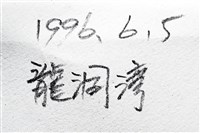 1996.6.5
龍洞湾